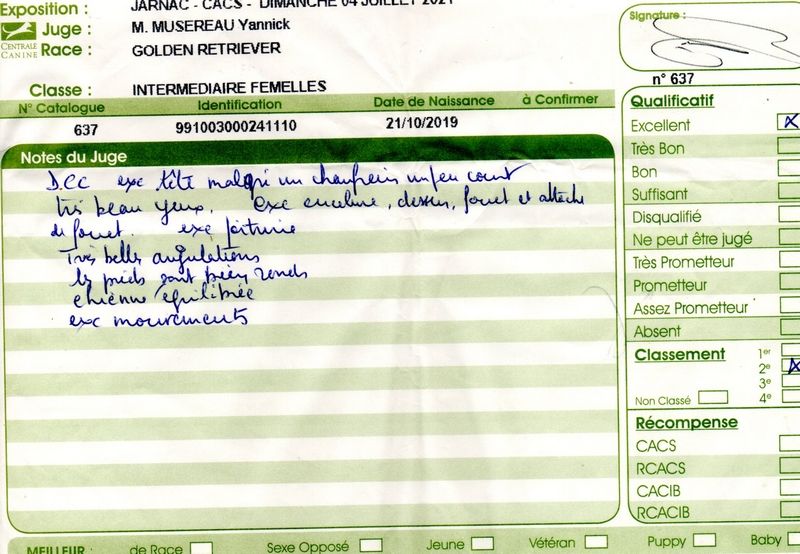 Exposition : JARNAC - CACS - DIMANCHE 04 JUILLET 2021
Juge : M. MUSEREAU Yannick
CENTRALE CANINE
Race : GOLDEN RETRIEVER
Classe : INTERMEDIAIRE FEMELLES
N° Catalogue Identification Date de Naissance à Confirmer
637 991003000241110 21/10/2019
Signature :
n° 637
Notes du Juge
D.CC exc tête malgré un chanfrein un peu court
très beau yeux. exc encolure, dessus, fouet et attache
de fouet. exc poitrine
Très belles angulations
les pieds sont bien ronds
chienne équilibrée
exc mouvements
Qualificatif
Excellent X
Très Bon
Bon
Suffisant
Disqualifié
Ne peut être jugé
Très Prometteur
Prometteur
Assez Prometteur
Absent
Classement 1er
2e X
3e
Non Classé 4e
Récompense
CACS
RCACS
CACIB
RCACIB
MEILLEUR : de Race Sexe Opposé Jeune Vétéran Puppy Baby